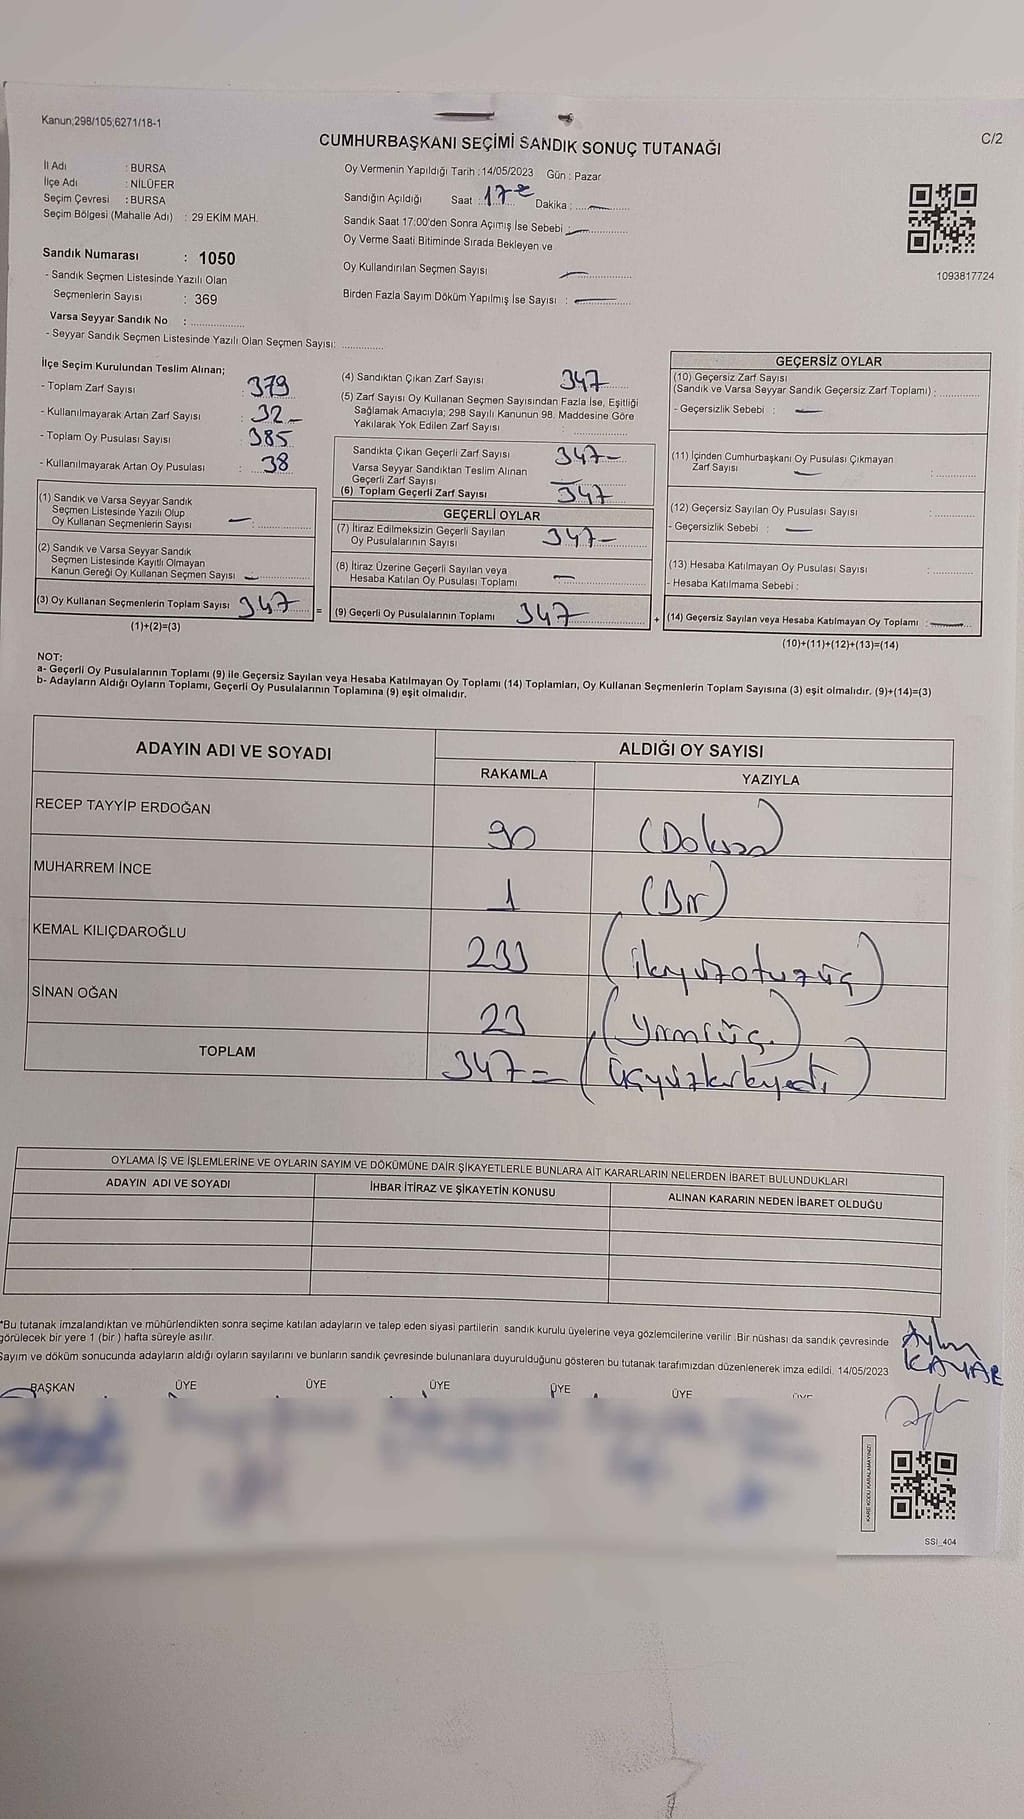 Kanun;298/105;6271/18-1
C/2
CUMHURBAŞKANI SEÇİMİ SANDIK SONUÇ TUTANAĞI
İl Adı : BURSA
İlçe Adı : NİLÜFER
Seçim Çevresi : BURSA
Seçim Bölgesi (Mahalle Adı) : 29 EKİM MAH.
Sandık Numarası : 1050
- Sandık Seçmen Listesinde Yazılı Olan
Seçmenlerin Sayısı : 369
Varsa Seyyar Sandık No : ..................
- Seyyar Sandık Seçmen Listesinde Yazılı Olan Seçmen Sayısı: ..............
Oy Vermenin Yapıldığı Tarih : 14/05/2023 Gün : Pazar
Sandığın Açıldığı Saat : 17 Dakika : —
Sandık Saat 17:00'den Sonra Açımış İse Sebebi : —
Oy Verme Saati Bitiminde Sırada Bekleyen ve
Oy Kullandırılan Seçmen Sayısı —
Birden Fazla Sayım Döküm Yapılmış İse Sayısı : —
1093817724
İlçe Seçim Kurulundan Teslim Alınan;
- Toplam Zarf Sayısı : 379
- Kullanılmayarak Artan Zarf Sayısı : 32-
- Toplam Oy Pusulası Sayısı : 385
- Kullanılmayarak Artan Oy Pusulası : 38
(1) Sandık ve Varsa Seyyar Sandık
Seçmen Listesinde Yazılı Olup
Oy Kullanan Seçmenlerin Sayısı — : ..............
(2) Sandık ve Varsa Seyyar Sandık
Seçmen Listesinde Kayıtlı Olmayan
Kanun Gereği Oy Kullanan Seçmen Sayısı : —
(3) Oy Kullanan Seçmenlerin Toplam Sayısı 347 =
(1)+(2)=(3)
(4) Sandıktan Çıkan Zarf Sayısı 347
(5) Zarf Sayısı Oy Kullanan Seçmen Sayısından Fazla İse, Eşitliği
Sağlamak Amacıyla; 298 Sayılı Kanunun 98. Maddesine Göre
Yakılarak Yok Edilen Zarf Sayısı : ..............
Sandıkta Çıkan Geçerli Zarf Sayısı 347-
Varsa Seyyar Sandıktan Teslim Alınan
Geçerli Zarf Sayısı —
(6) Toplam Geçerli Zarf Sayısı 347
GEÇERLİ OYLAR
(7) İtiraz Edilmeksizin Geçerli Sayılan
Oy Pusulalarının Sayısı 347-
(8) İtiraz Üzerine Geçerli Sayılan veya
Hesaba Katılan Oy Pusulası Toplamı —
(9) Geçerli Oy Pusulalarının Toplamı 347 +
GEÇERSİZ OYLAR
(10) Geçersiz Zarf Sayısı
(Sandık ve Varsa Seyyar Sandık Geçersiz Zarf Toplamı) : ..............
- Geçersizlik Sebebi : —
(11) İçinden Cumhurbaşkanı Oy Pusulası Çıkmayan
Zarf Sayısı — : ..............
(12) Geçersiz Sayılan Oy Pusulası Sayısı : ..............
- Geçersizlik Sebebi : —
(13) Hesaba Katılmayan Oy Pusulası Sayısı : ..............
- Hesaba Katılmama Sebebi :
(14) Geçersiz Sayılan veya Hesaba Katılmayan Oy Toplamı : —
(10)+(11)+(12)+(13)=(14)
NOT:
a- Geçerli Oy Pusulalarının Toplamı (9) ile Geçersiz Sayılan veya Hesaba Katılmayan Oy Toplamı (14) Toplamları, Oy Kullanan Seçmenlerin Toplam Sayısına (3) eşit olmalıdır. (9)+(14)=(3)
b- Adayların Aldığı Oyların Toplamı, Geçerli Oy Pusulalarının Toplamına (9) eşit olmalıdır.
ADAYIN ADI VE SOYADI ALDIĞI OY SAYISI
RAKAMLA YAZIYLA
RECEP TAYYİP ERDOĞAN 90
MUHARREM İNCE 1 (Bir)
KEMAL KILIÇDAROĞLU 233 (ikiyüzotuzüç)
SİNAN OĞAN 23 (yirmiüç.)
TOPLAM 347= (üçyüzkırkyedi)
OYLAMA İŞ VE İŞLEMLERİNE VE OYLARIN SAYIM VE DÖKÜMÜNE DAİR ŞİKAYETLERLE BUNLARA AİT KARARLARIN NELERDEN İBARET BULUNDUKLARI
ADAYIN ADI VE SOYADI İHBAR İTİRAZ VE ŞİKAYETİN KONUSU ALINAN KARARIN NEDEN İBARET OLDUĞU
*Bu tutanak imzalandıktan ve mühürlendikten sonra seçime katılan adayların ve talep eden siyasi partilerin sandık kurulu üyelerine veya gözlemcilerine verilir Bir nüshası da sandık çevresinde
görülecek bir yere 1 (bir ) hafta süreyle asılır.
Sayım ve döküm sonucunda adayların aldığı oyların sayılarını ve bunların sandık çevresinde bulunanlara duyurulduğunu gösteren bu tutanak tarafımızdan düzenlenerek imza edildi. 14/05/2023
BAŞKAN ÜYE ÜYE ÜYE ÜYE ÜYE ÜYE
KARE KODU KARALAMAYINIZ!
SSI_404